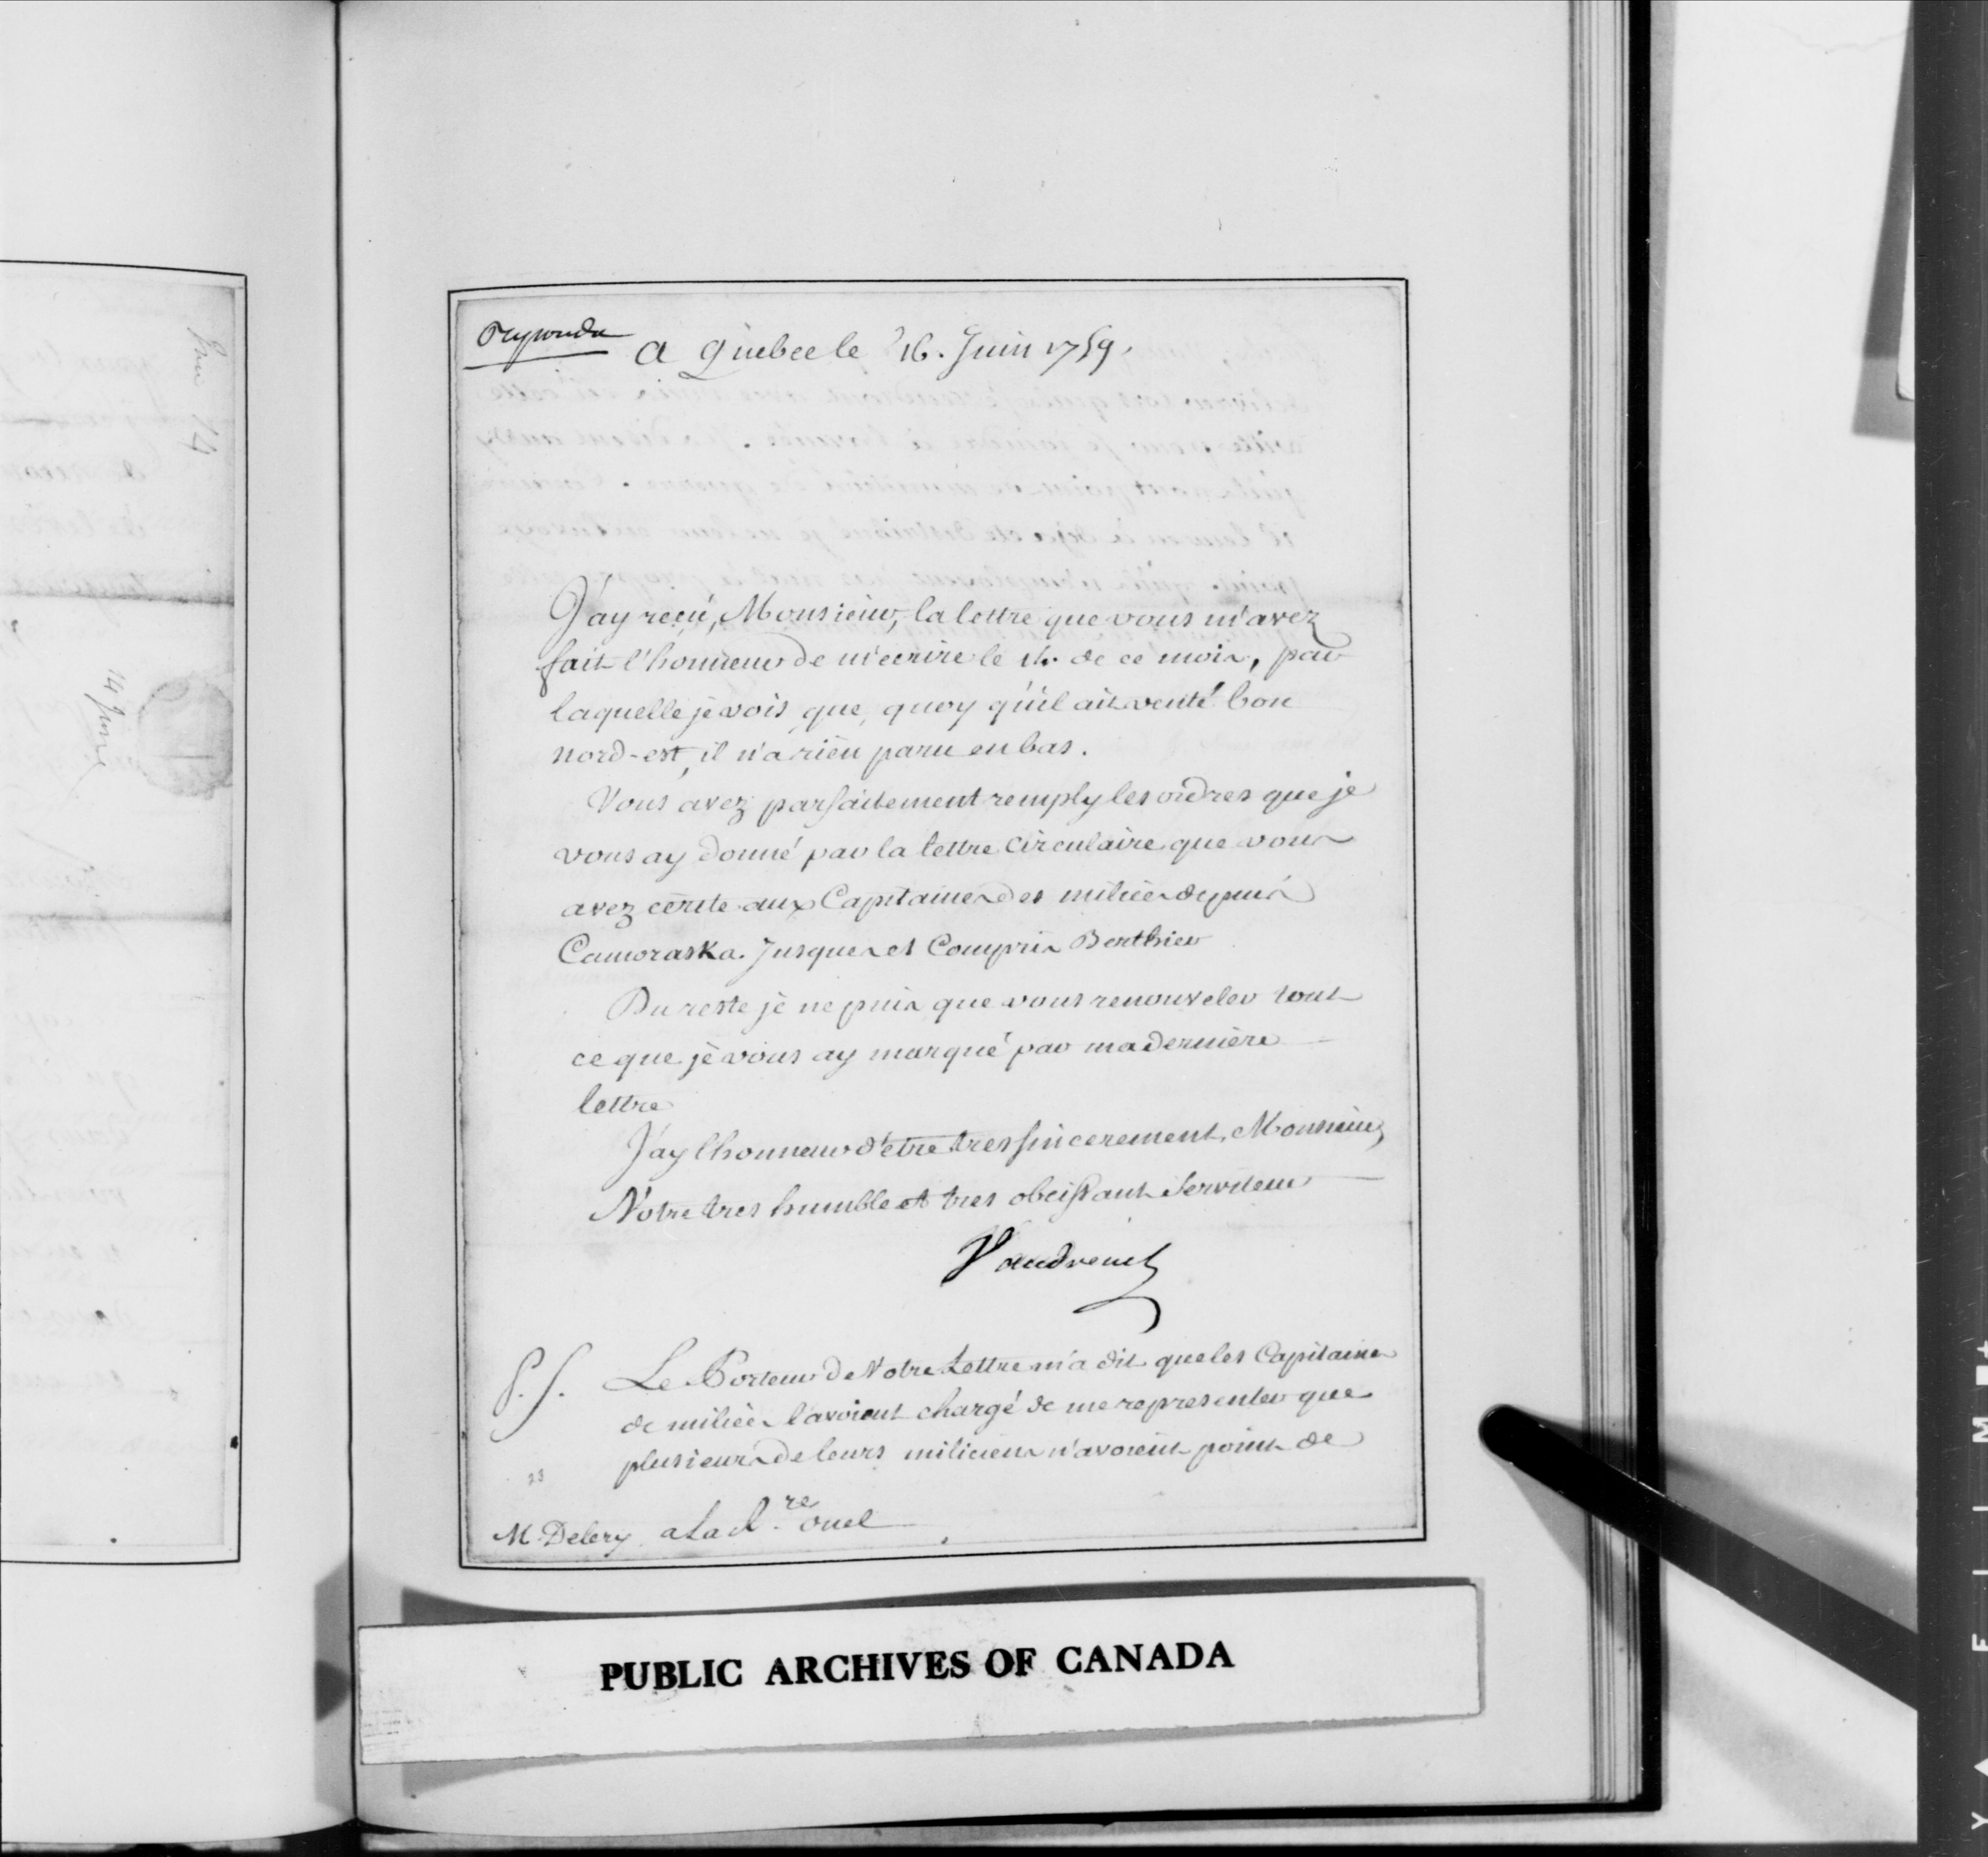 Repondu
a Quebec le 16. Juin 1759.
J'ay reçu, Monsieur, la lettre que vous m'avez
fait l'honneur de m'ecrire le 14. de ce mois, par
laquelle je vois que, quoy qu'il ait venté bon
nord-est, il n'a rien paru en bas.
Vous avez parfaitement remply les ordres que je
vous ay donné par la lettre circulaire que vous
avez ecrite aux Capitaines des milices depuis
Camoraska Jusques et Compris Berthier
Du reste je ne puis que vous renouveler tout
ce que je vous ay marqué par ma derniere
lettre
J'ay l'honneur d'etre tres sincerement, Monsieur,
Votre tres humble et tres obeissant Serviteur
Vaudreuil
P.S. Le Porteur de Votre Lettre m'a dit que les Capitaines
de milices l'avoient chargé de me representer que
plusieurs de leurs miliciens n'avoient point de
23
M. Delery a La R.re ouel
PUBLIC ARCHIVES OF CANADA